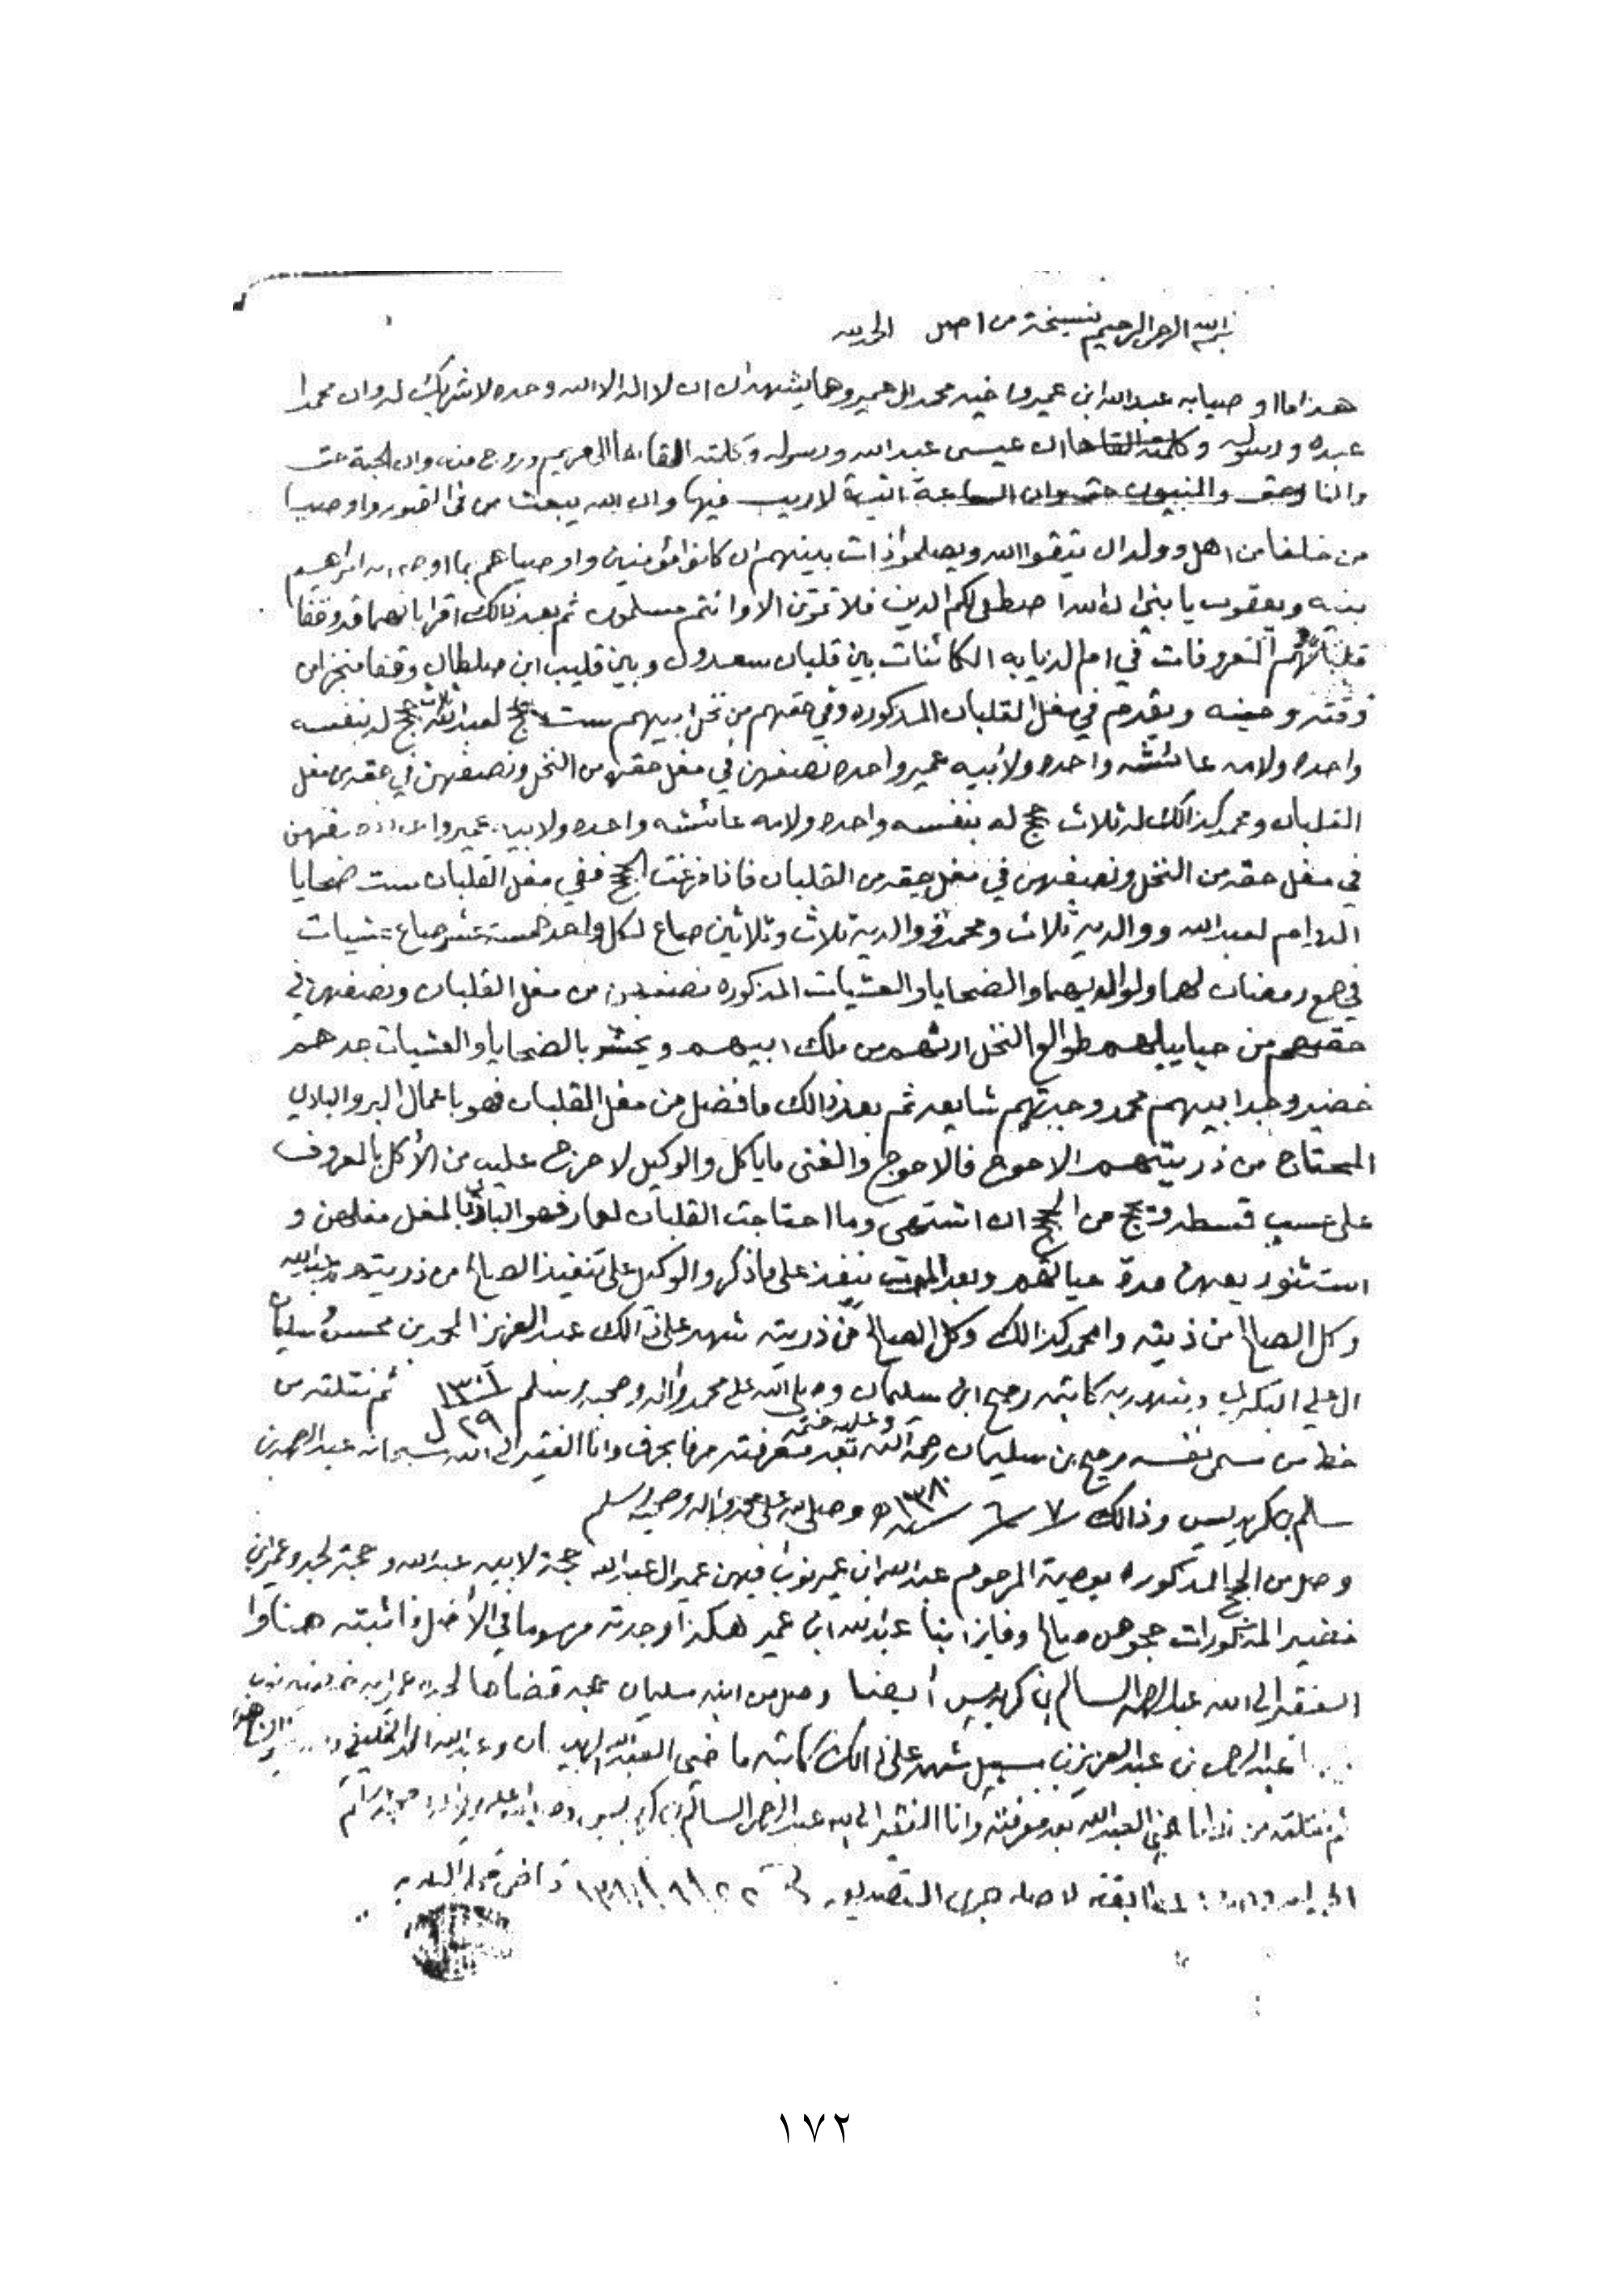 بسم الله الرحمن الرحيم نسخة من اصل الحمد لله
هذا ما اوصيا به عبدالله ابن عمير واخيه محمد ال عمير وهما يشهدان ان لا اله الا الله وحده لا شريك له وان محمدا
عبده ورسوله وكلمته القاها ان عيسى عبدالله ورسوله وكلمته القاها الى مريم وروح منه وان الجنة حق
والنار حق والنبيون حق وان الساعة اتية لا ريب فيها وان الله يبعث من في القبور واوصيا
من خلفا من اهل وولد ان يتقوا الله ويصلحوا ذات بينهم ان كانوا مؤمنين واوصياهم بما اوصى به ابراهيم
بنيه ويعقوب يا بني ان الله اصطفى لكم الدين فلا تموتن الا وانتم مسلمون ثم بعد ذالك اقرا بانهما قد وقفا
المعروفات في ام الذيابه الكائنات بين قلبان سعدون وبين قليب ابن صلطان وقفا منجزا من
وقته وحينه ويقدم في مغل القلبان المذكوره وفي حقهم من نخل ابيهم ست حجج لعبدالله ثلاث حجج له بنفسه
واحده ولامه عائشه واحده ولأبيه عمير واحده نصفهن في مغل حقه من النخل ونصفهن في حقه من مغل
القلبان ومحمد كذالك له ثلاث حجج له بنفسه واحده ولامه عائشه واحده ولابيه عمير واحده نصفهن
في مغل حقه من النخل ونصفهن في مغل حقه من القلبان فاذا فرغت الحجج ففي مغل القلبان ست ضحايا
الدوام لعبدالله ووالديه ثلاث ومحمد ووالديه ثلاث وثلاثين صاع لكل واحد خمسة عشر صاع عشيات
في جمع رمضان لهما ولوالديهما والضحايا والعشيات المذكوره نصفهن من مغل القلبان ونصفهن في
حقهم من طوالع النخل ارثهم من ملك ابيهم ويحشر بالضحايا والعشيات جدهم
خضير وجد ابيهم محمد وجدتهم شايعه ثم بعد ذالك ما فضل من مغل القلبان فهو باعمال البر والبادي
المحتاج من ذريتهم الاحوج فالاحوج والغني ما ياكل والوكيل لا حرج عليه من الأكل بالمعروف
على حسب قسطه من الحجج ان اشتهى وما احتاجت القلبان لعمار فهو البادي بالمغل مغلهن و
استثنو ريعهن مدة حياتهم وبعد الموت ينفذ على ما ذكر والوكيل على تنفيذ الصالح من ذريتهم عبدالله
وكل الصالح من ذريته ومحمد كذالك وكل الصالح من ذريته شهد على ذالك عبدالعزيز الحمد بن محسن وسليمان
ال علي البكري وشهد به كاتبه رميح ابن سليمان وصلى الله على محمد واله وصحبه وسلم ثم نقلته من
وعليه ختمه
خط من سمى نفسه رميح بن سليمان رحمه الله بعد معرفته حرفا بحرف وانا الفقير الى الله سبحانه عبدالرحمن
سالم بن كريديس وذالك ٧ / ٦ / سنة ١٣٨٠ه وصلى الله على محمد واله وصحبه وسلم
وصل من الحجج المذكوره بوصية المرحوم عبدالله ابن عمير نوب فيهن عمير ال عبدالله حجة لابيه عبدالله وحجة لجده عمير ابن
خضير المذكورات حججوهن صالح وفايز ابنا عبدالله ابن عمير هكذا وجدته مرسوما في الأصل واثبته هنا وانا
الفقير الى الله عبدالرحمن السالم بن كريديس أيضا وصل من ابنه سليمان حجه قضاها
عبدالرحمن بن عبدالعزيز بن سبيل شهد على ذالك كاتبه ماضي العبدالله
ثم نقلته من ماضي العبدالله بعد معرفته وانا الفقير الى الله عبدالرحمن السالم بن كريديس
لاصله جرى التصديق في
١٧٢